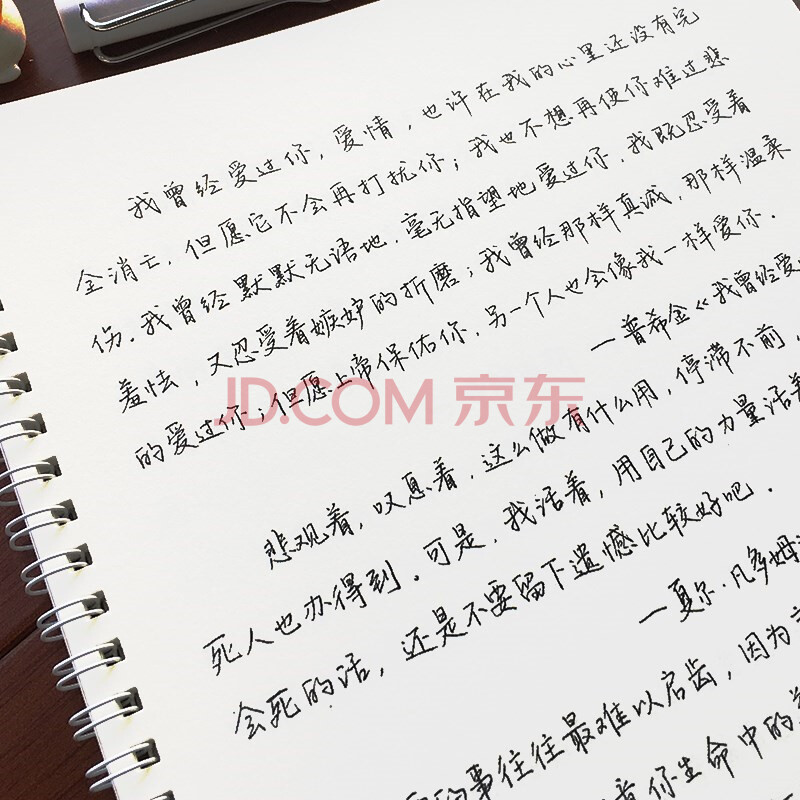 我曾经爱过你，爱情，也许在我的心里还没有完
全消亡，但愿它不会再打扰你；我也不想再使你难过悲
伤.我曾经默默无语地，毫无指望地爱过你，我既忍受着
羞怯，又忍受着嫉妒的折磨；我曾经那样真诚，那样温柔
的爱过你；但愿上帝保佑你，另一个人也会像我一样爱你.
一普希金《我曾经爱
JD.COM 京东
悲观着，叹息着，这么做有什么用，停滞不前，
死人也办得到.可是，我活着，用自己的力量活着
会死的话，还是不要留下遗憾比较好吧.
一夏尔·凡多姆
的事往往最难以启齿，因为
着你生命中的